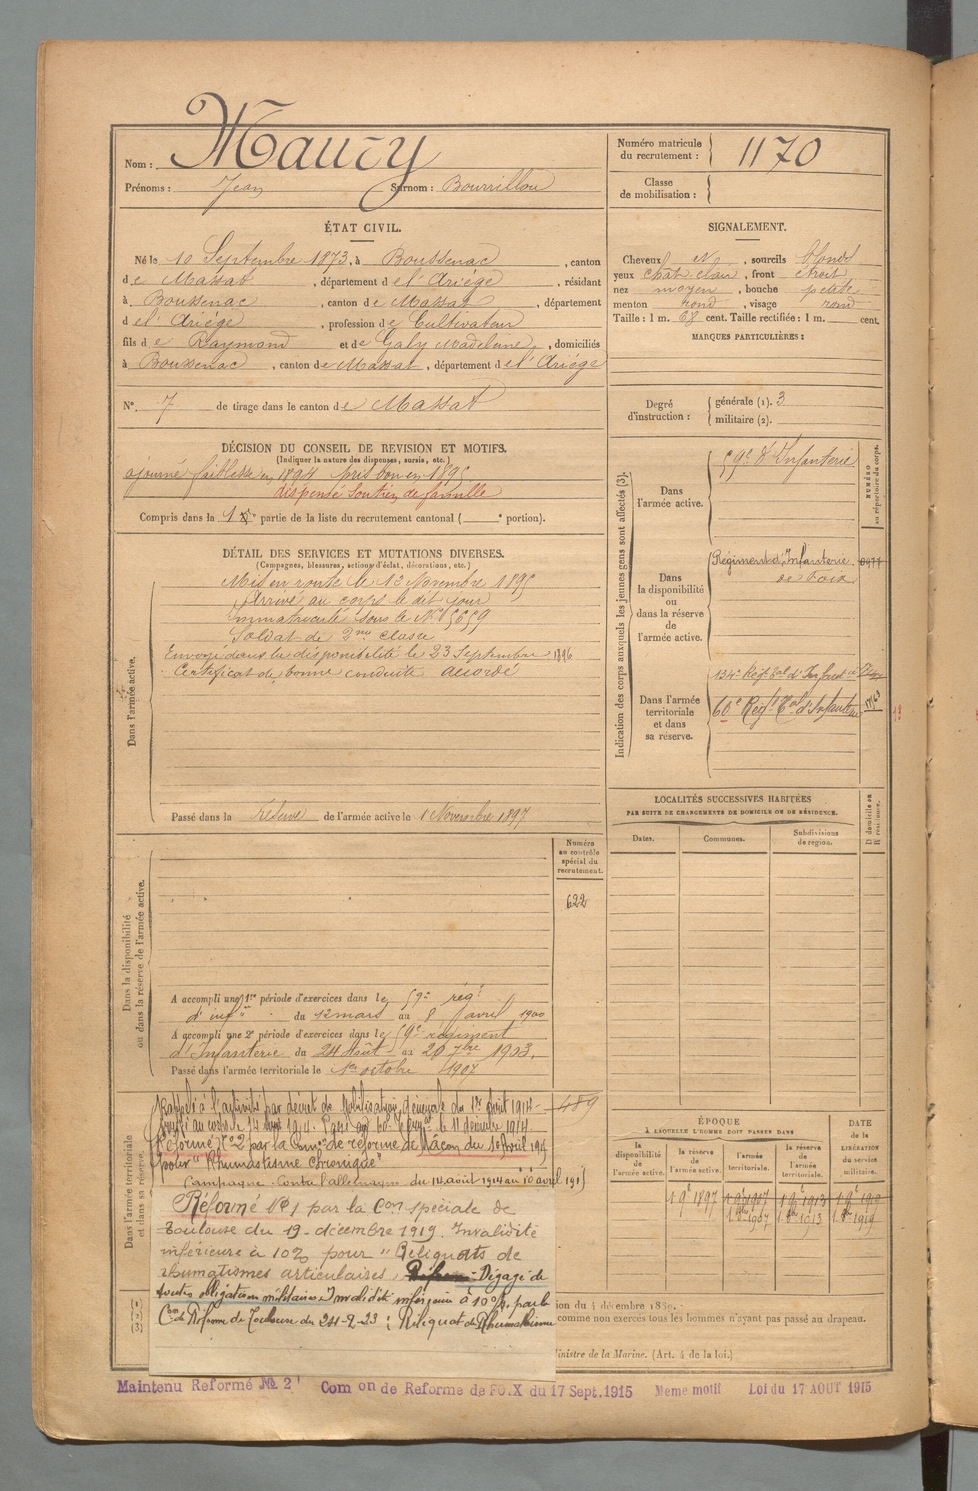 Nom : Maury
Prénoms : Jean Surnom : Bourrillou
Numéro matricule du recrutement : 1170
Classe de mobilisation :
ÉTAT CIVIL.
Né le 10 Septembre 1873, à Boussenac, canton
de Massat, département de l'Ariége, résidant
à Boussenac, canton de Massat, département
de l'Ariége, profession de Cultivateur
fils de Raymond et de Galy Madeleine, domiciliés
à Boussenac, canton de Massat, département de l'Ariége
N° 7 de tirage dans le canton de Massat
SIGNALEMENT.
Cheveux d°, sourcils blonds
yeux chat. clair, front étroit
nez moyen, bouche petite
menton rond, visage rond
Taille : 1 m. 68 cent. Taille rectifiée : 1 m. cent.
MARQUES PARTICULIÈRES :
Degré d'instruction : générale (1). 3
militaire (2).
DÉCISION DU CONSEIL DE REVISION ET MOTIFS.
(Indiquer la nature des dispenses, sursis, etc.)
ajourné faiblesse en 1894 pris bon en 1895
dispensé soutien de famille
Compris dans la 1e partie de la liste du recrutement cantonal ( e portion).
DÉTAIL DES SERVICES ET MUTATIONS DIVERSES.
(Campagnes, blessures, actions d'éclat, décorations, etc.)
Dans l'armée active.
Mis en route le 13 Novembre 1895
Arrivé au corps le dit jour
Immatriculé sous le N° 5659
Soldat de 2me classe
Envoyé dans la disponibilité le 23 Septembre 1896
Certificat de bonne conduite accordé
Passé dans la Réserve de l'armée active le 1 Novembre 1897
Indication des corps auxquels les jeunes gens sont affectés (3).
NUMÉRO au répertoire du corps.
Dans l'armée active.
59e d'Infanterie
Dans la disponibilité ou dans la réserve de l'armée active.
Régiment d'Infanterie
de Foix
Dans l'armée territoriale et dans sa réserve.
134e Régt tal d'Infant ie
60e Régt Tal d'Infanterie
LOCALITÉS SUCCESSIVES HABITÉES
PAR SUITE DE CHANGEMENTS DE DOMICILE OU DE RÉSIDENCE.
Dates. Communes. Subdivisions de région. D domicile ou R résidence.
Dans la disponibilité ou dans la réserve de l'armée active.
Numéro au contrôle spécial du recrutement.
622
A accompli une 1re période d'exercices dans le 59e régt
d'inf ie du 12 mars au 8 avril 1900
A accompli une 2e période d'exercices dans le 59e régiment
d'Infanterie du 24 Août au 20 7bre 1903.
Passé dans l'armée territoriale le 1er octobre 1907
Dans l'armée territoriale et dans sa réserve.
489
Rappelé à l'activité par décret de Mobilisation générale du 1er Août 1914
le 11 décembre 1914.
Réformé N° 2 par la Comon de réforme de Mâcon du 10 avril 1915
pour "Rhumatisme chronique"
Campagne contre l'allemagne du 14 août 1914 au 10 avril 1915
Réformé N° 1 par la Con spéciale de
Toulouse du 19 décembre 1919. Invalidité
inférieure à 10% pour "Reliquats de
rhumatismes articulaires. Dégagé de
toutes obligations militaires. Invalidité inférieure à 10% par la
Con de Réforme de Toulouse du 24-2-23 : Reliquat de Rhumatisme
ÉPOQUE
À LAQUELLE L'HOMME DOIT PASSER DANS
DATE de la LIBÉRATION du service militaire.
la disponibilité de l'armée active. la réserve de l'armée active. l'armée territoriale. la réserve de l'armée territoriale.
1 9e 1897 1 9e 1907 1 9e 1913 1 9e 1919
1 8e 1907 1 8e 1913 1 8e 1919
ion du 4 décembre 1889.
comme non exercés tous les hommes n'ayant pas passé au drapeau.
Ministre de la Marine. (Art. 4 de la loi.)
Maintenu Reformé N° 2 Com on de Reforme de FO.X du 17 Sept. 1915 Meme motif Loi du 17 AOUT 1915